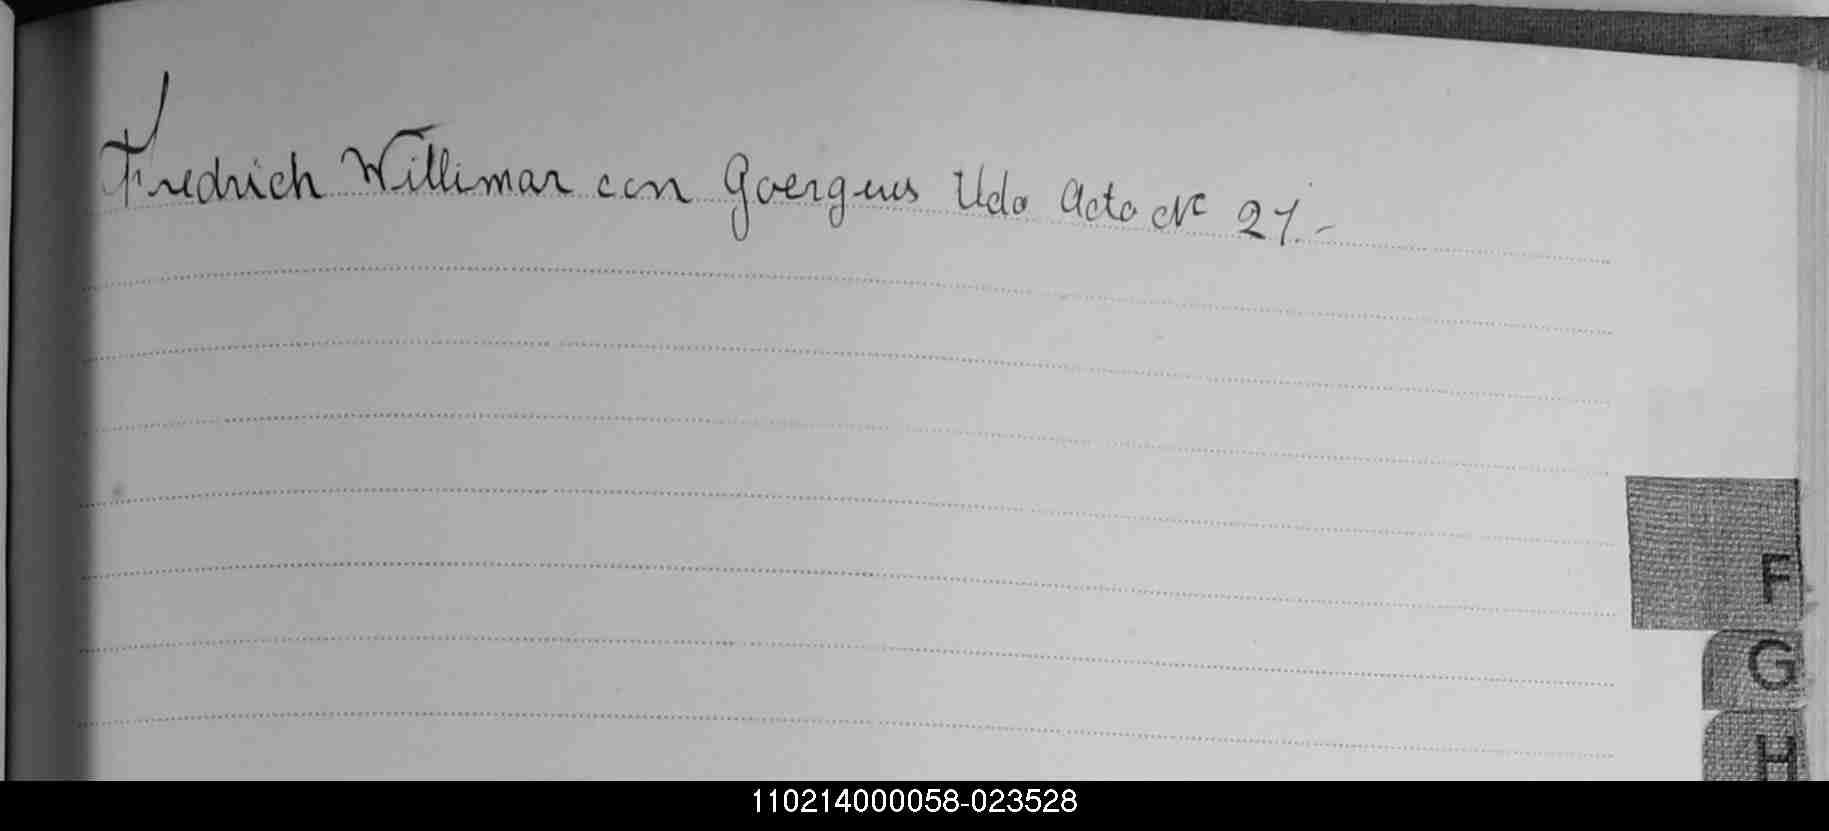 Fredrich Willimar con Goergeus Udo Acta Nº 27.-
F
G
H
110214000058-023528